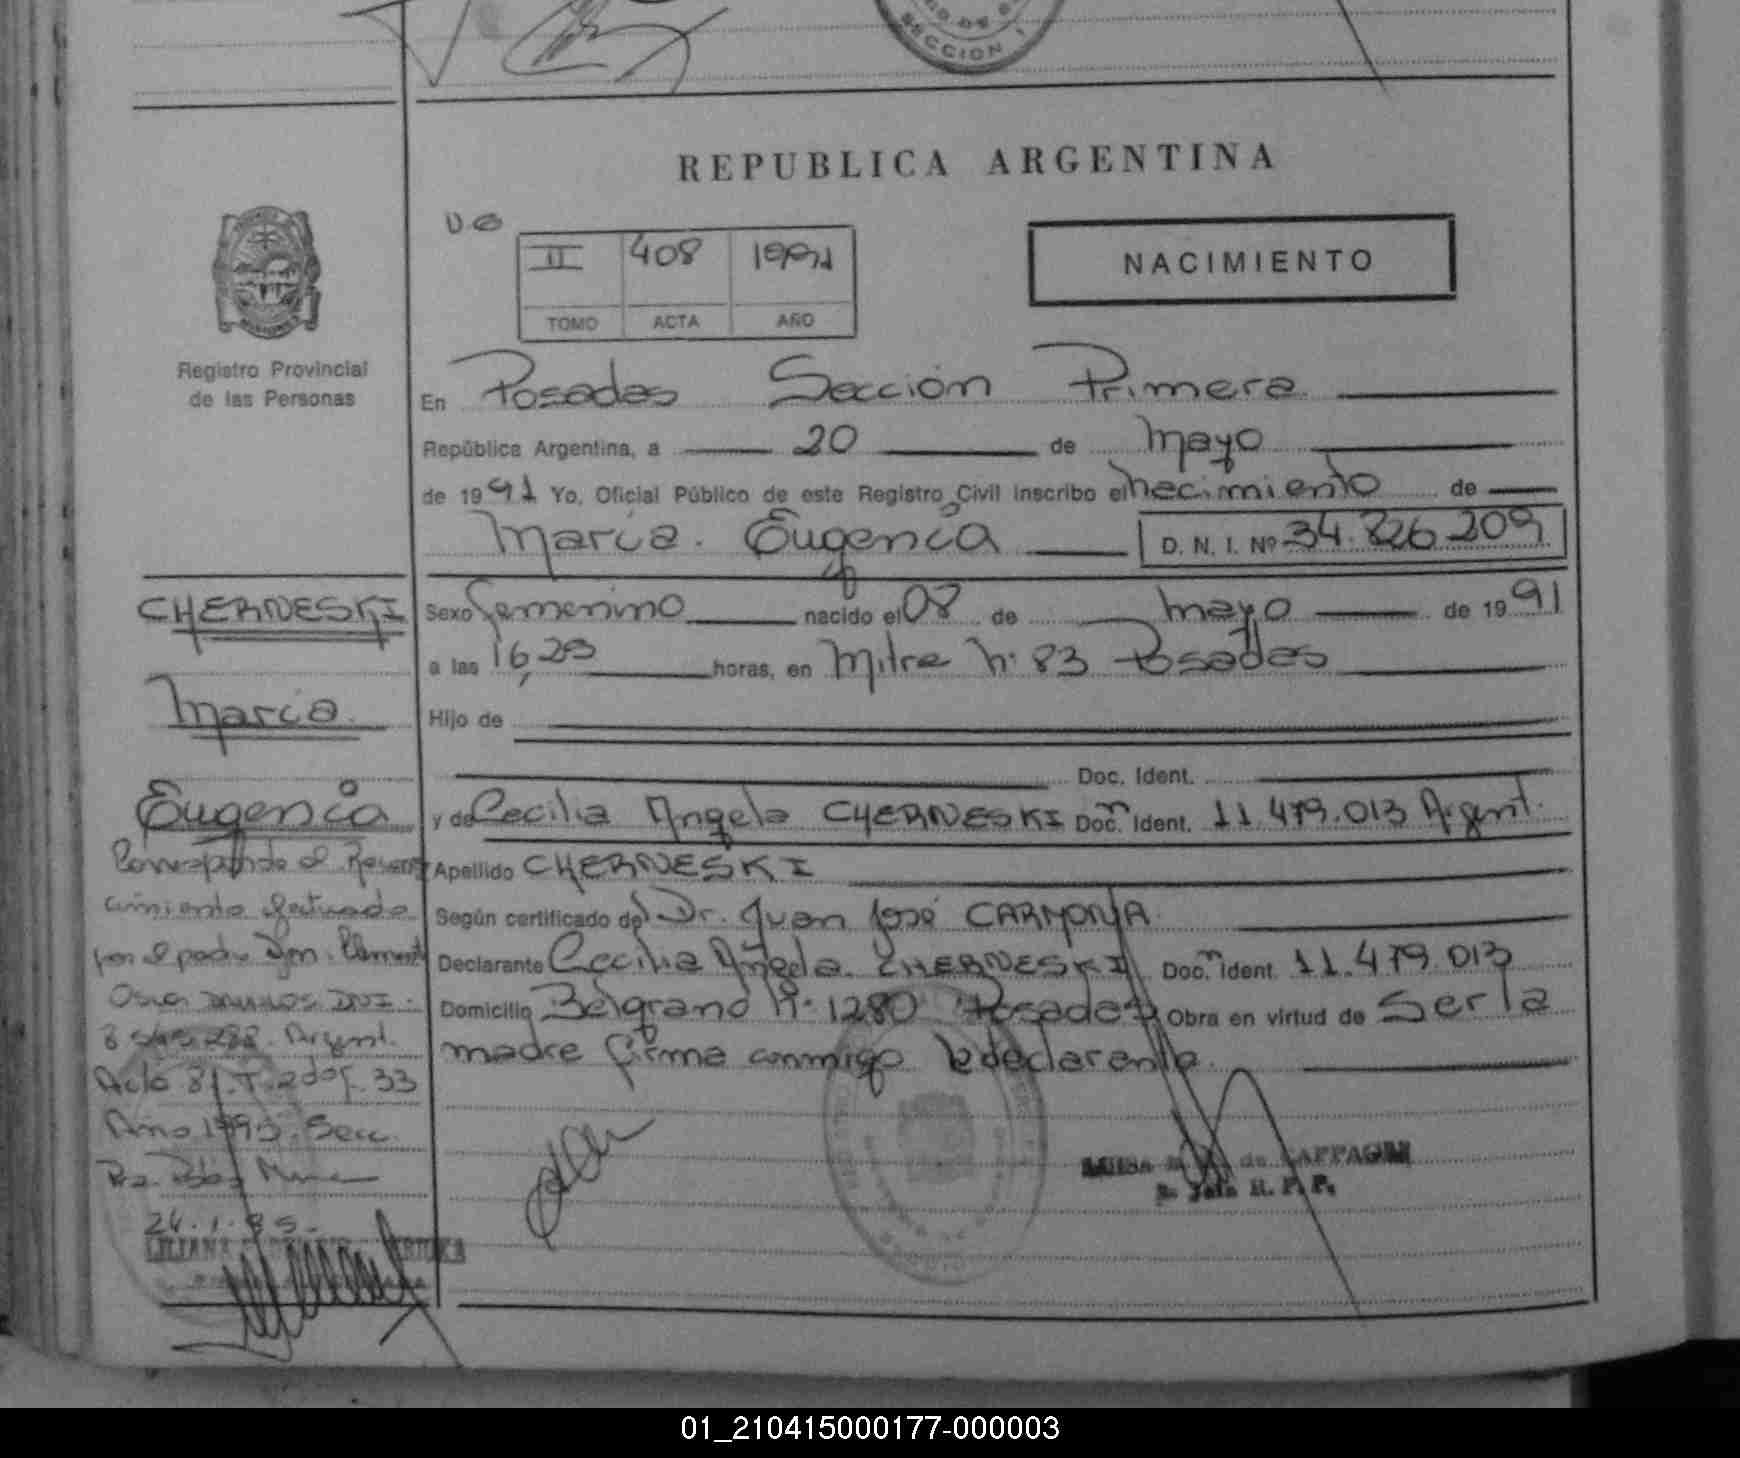 SECCION 1
REPUBLICA ARGENTINA
II 408 1991
TOMO ACTA AÑO
NACIMIENTO
Registro Provincial
de las Personas
En Posadas Sección Primera
República Argentina, a 20 de mayo
de 1991 Yo, Oficial Público de este Registro Civil inscribo el nacimiento de
María Eugenia D. N. I. Nº 34.826.209
CHERNESKI
María
Eugenia
Sexo femenino nacido el 08 de mayo de 1991
a las 16,25 horas, en Mitre Nº 83 Posadas
Hijo de
Doc. Ident.
y de Cecilia Angela CHERNESKI Doc. Ident. 11.479.013 Argent.
Apellido CHERNESKI
Según certificado del Dr. Juan José CARMONA
Declarante Cecilia Angela CHERNESKI Doc. Ident. 11.479.013
Domicilio Belgrano Nº 1280 Posadas Obra en virtud de Ser la
madre firma conmigo la declarante.
Corresponde al Recono
cimiento efectuado
por el padre Dn. Clement
Oscar DNI.
Argent.
Acta 81. T. 2do f. 33
Año 1995. Secc.
LUISA de
R. P. P.
LILIANA
01_210415000177-000003